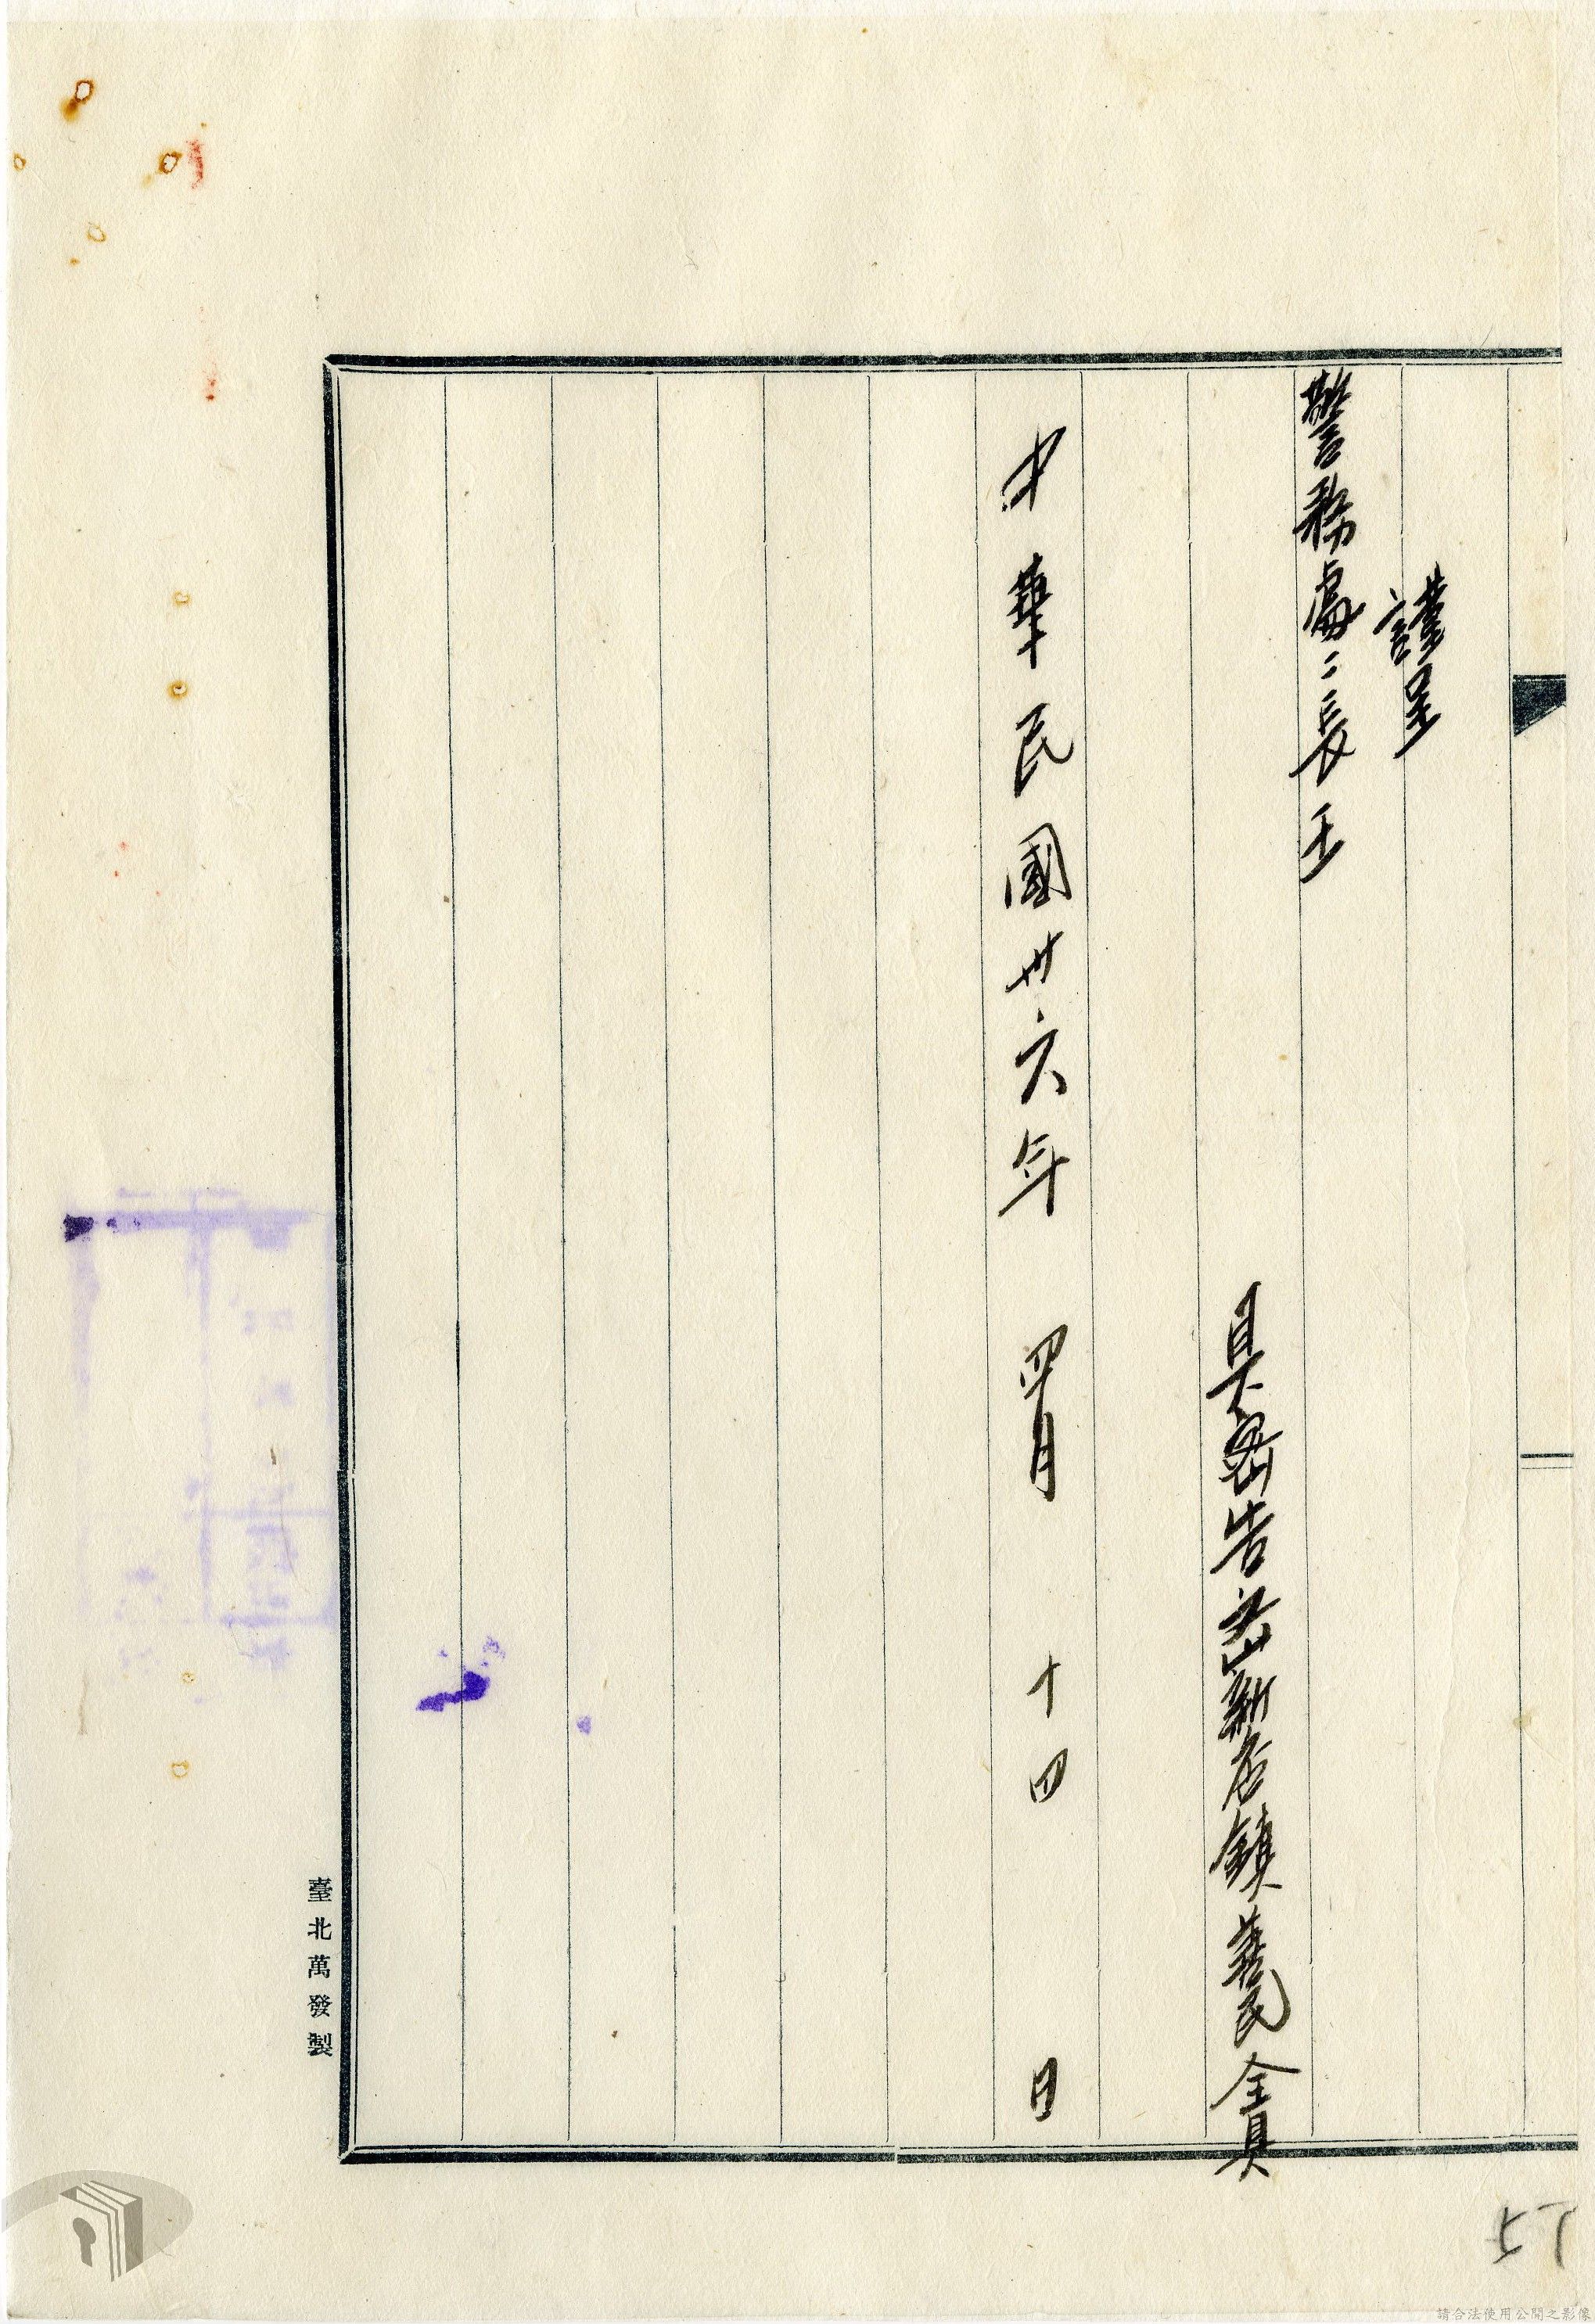 謹呈
警務處々長王
具密告書新店鎮義民全具
中華民國卅六年四月十四日
臺北萬發製
57
請合法使用公開之影像